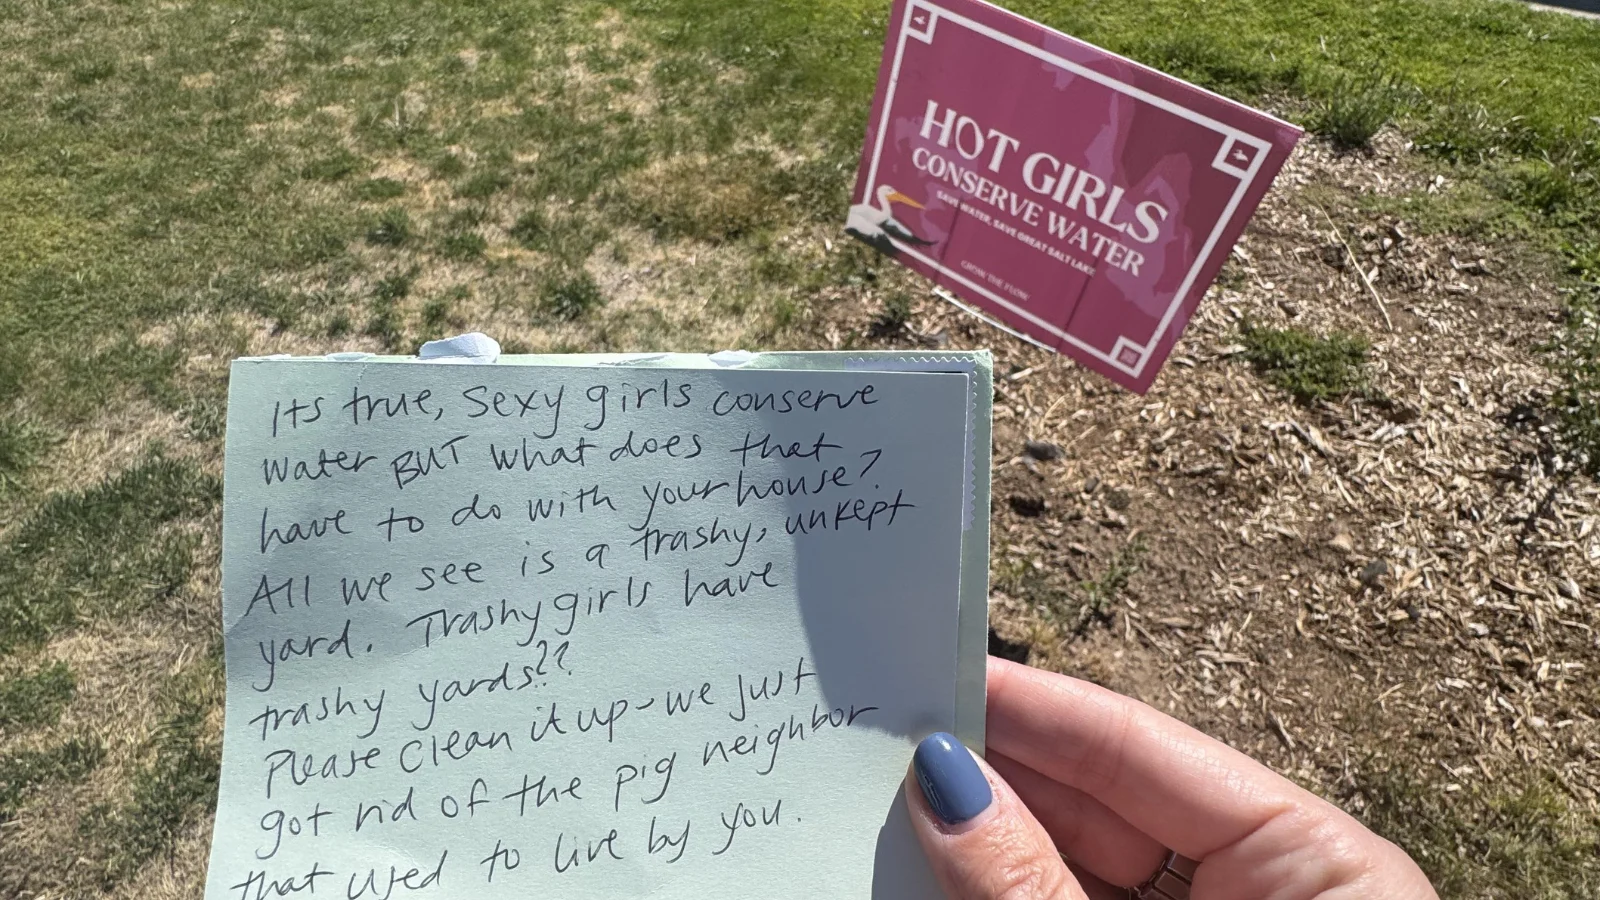 HOT GIRLS
CONSERVE WATER
SAVE WATER, SAVE GREAT SALT LAKE
GROW THE FLOW
Its true, Sexy girls conserve
water BUT what does that
have to do with your house?
All we see is a trashy, unkept
yard. Trashy girls have
trashy yards??
Please clean it up - we just
got rid of the pig neighbor
that used to live by you.